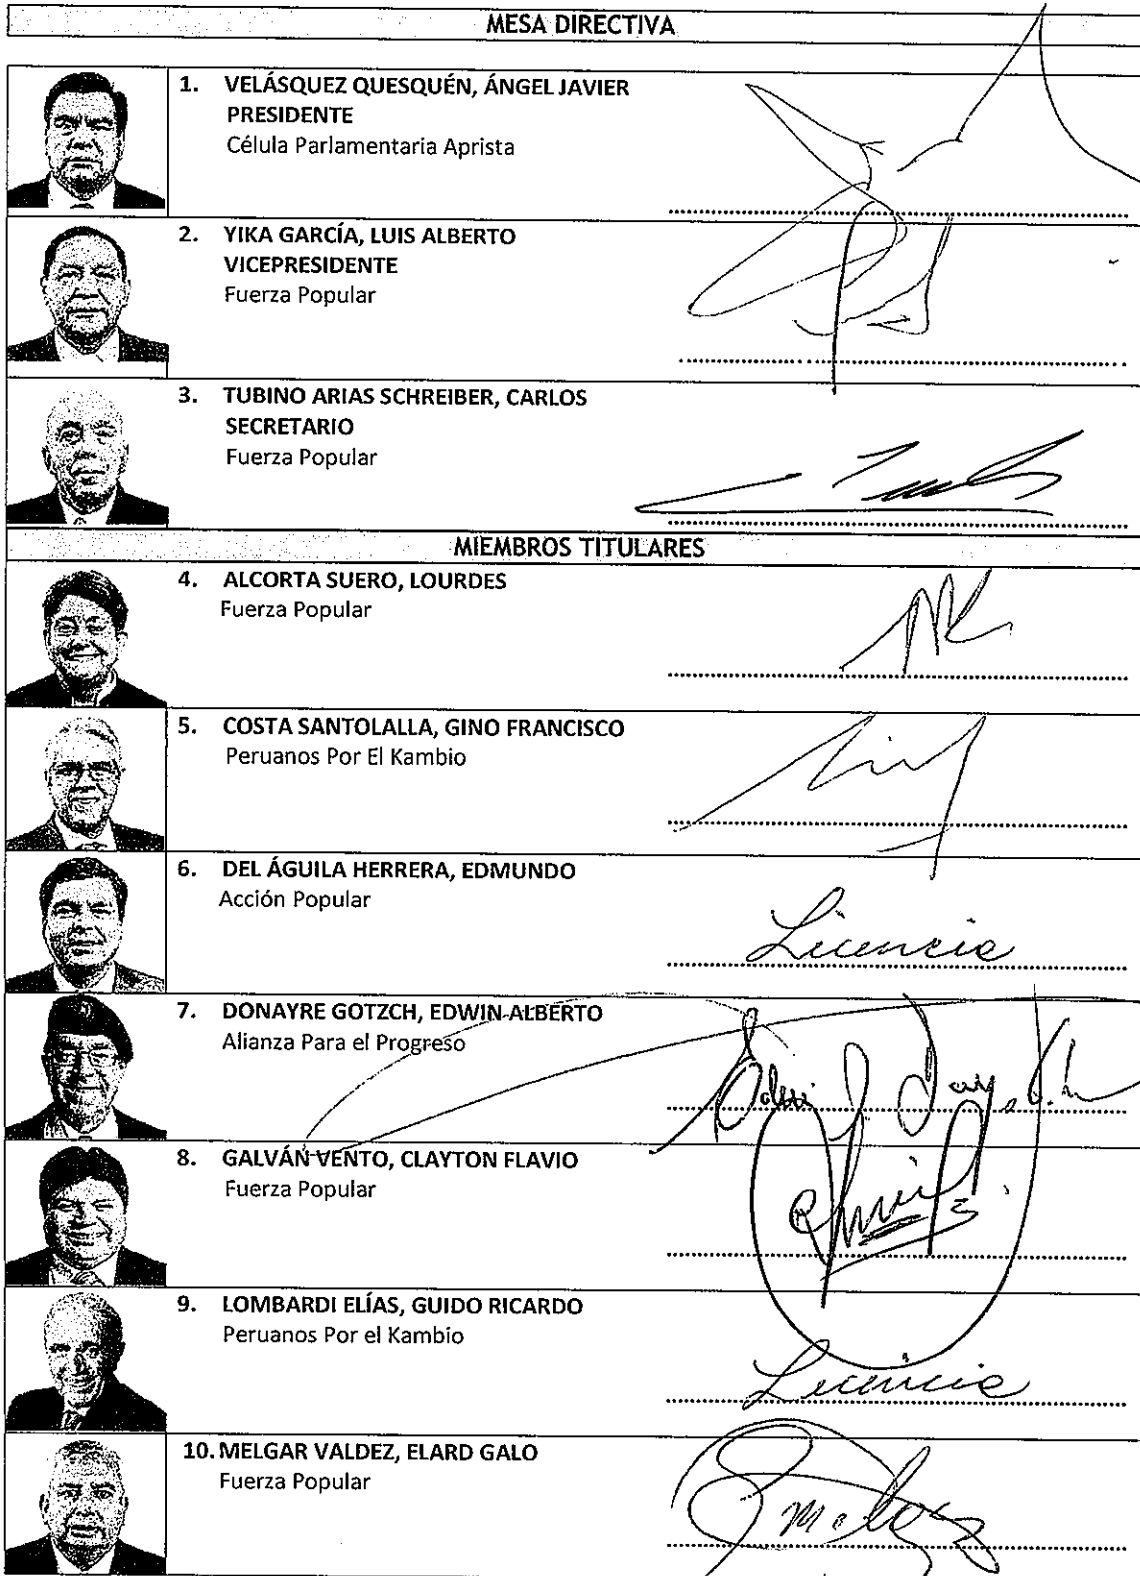 MESA DIRECTIVA
1. VELÁSQUEZ QUESQUÉN, ÁNGEL JAVIER
PRESIDENTE
Célula Parlamentaria Aprista
2. YIKA GARCÍA, LUIS ALBERTO
VICEPRESIDENTE
Fuerza Popular
3. TUBINO ARIAS SCHREIBER, CARLOS
SECRETARIO
Fuerza Popular
MIEMBROS TITULARES
4. ALCORTA SUERO, LOURDES
Fuerza Popular
5. COSTA SANTOLALLA, GINO FRANCISCO
Peruanos Por El Kambio
6. DEL ÁGUILA HERRERA, EDMUNDO
Acción Popular
Licencia
7. DONAYRE GOTZCH, EDWIN ALBERTO
Alianza Para el Progreso
8. GALVÁN VENTO, CLAYTON FLAVIO
Fuerza Popular
9. LOMBARDI ELÍAS, GUIDO RICARDO
Peruanos Por el Kambio
Licencia
10. MELGAR VALDEZ, ELARD GALO
Fuerza Popular